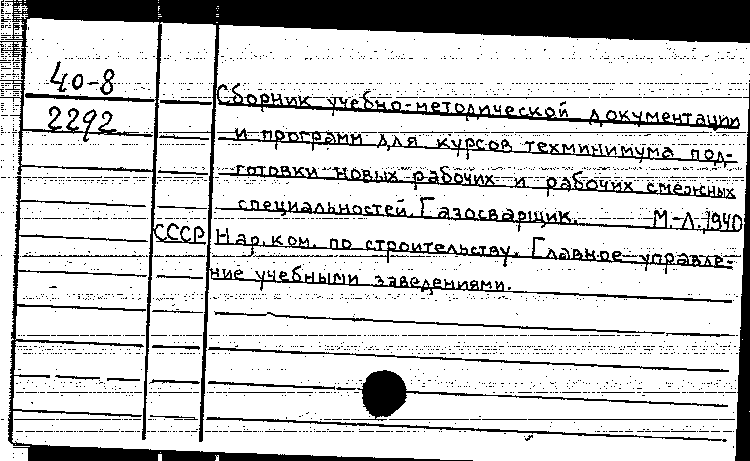 40-8
2292
Сборник учебно-методической документации
и программ для курсов техминимума под-
готовки новых рабочих и рабочих смежных
специальностей. Газосварщик. М.-Л., 1940
СССР Нар. ком. по строительству. Главное управле-
ние учебными заведениями.